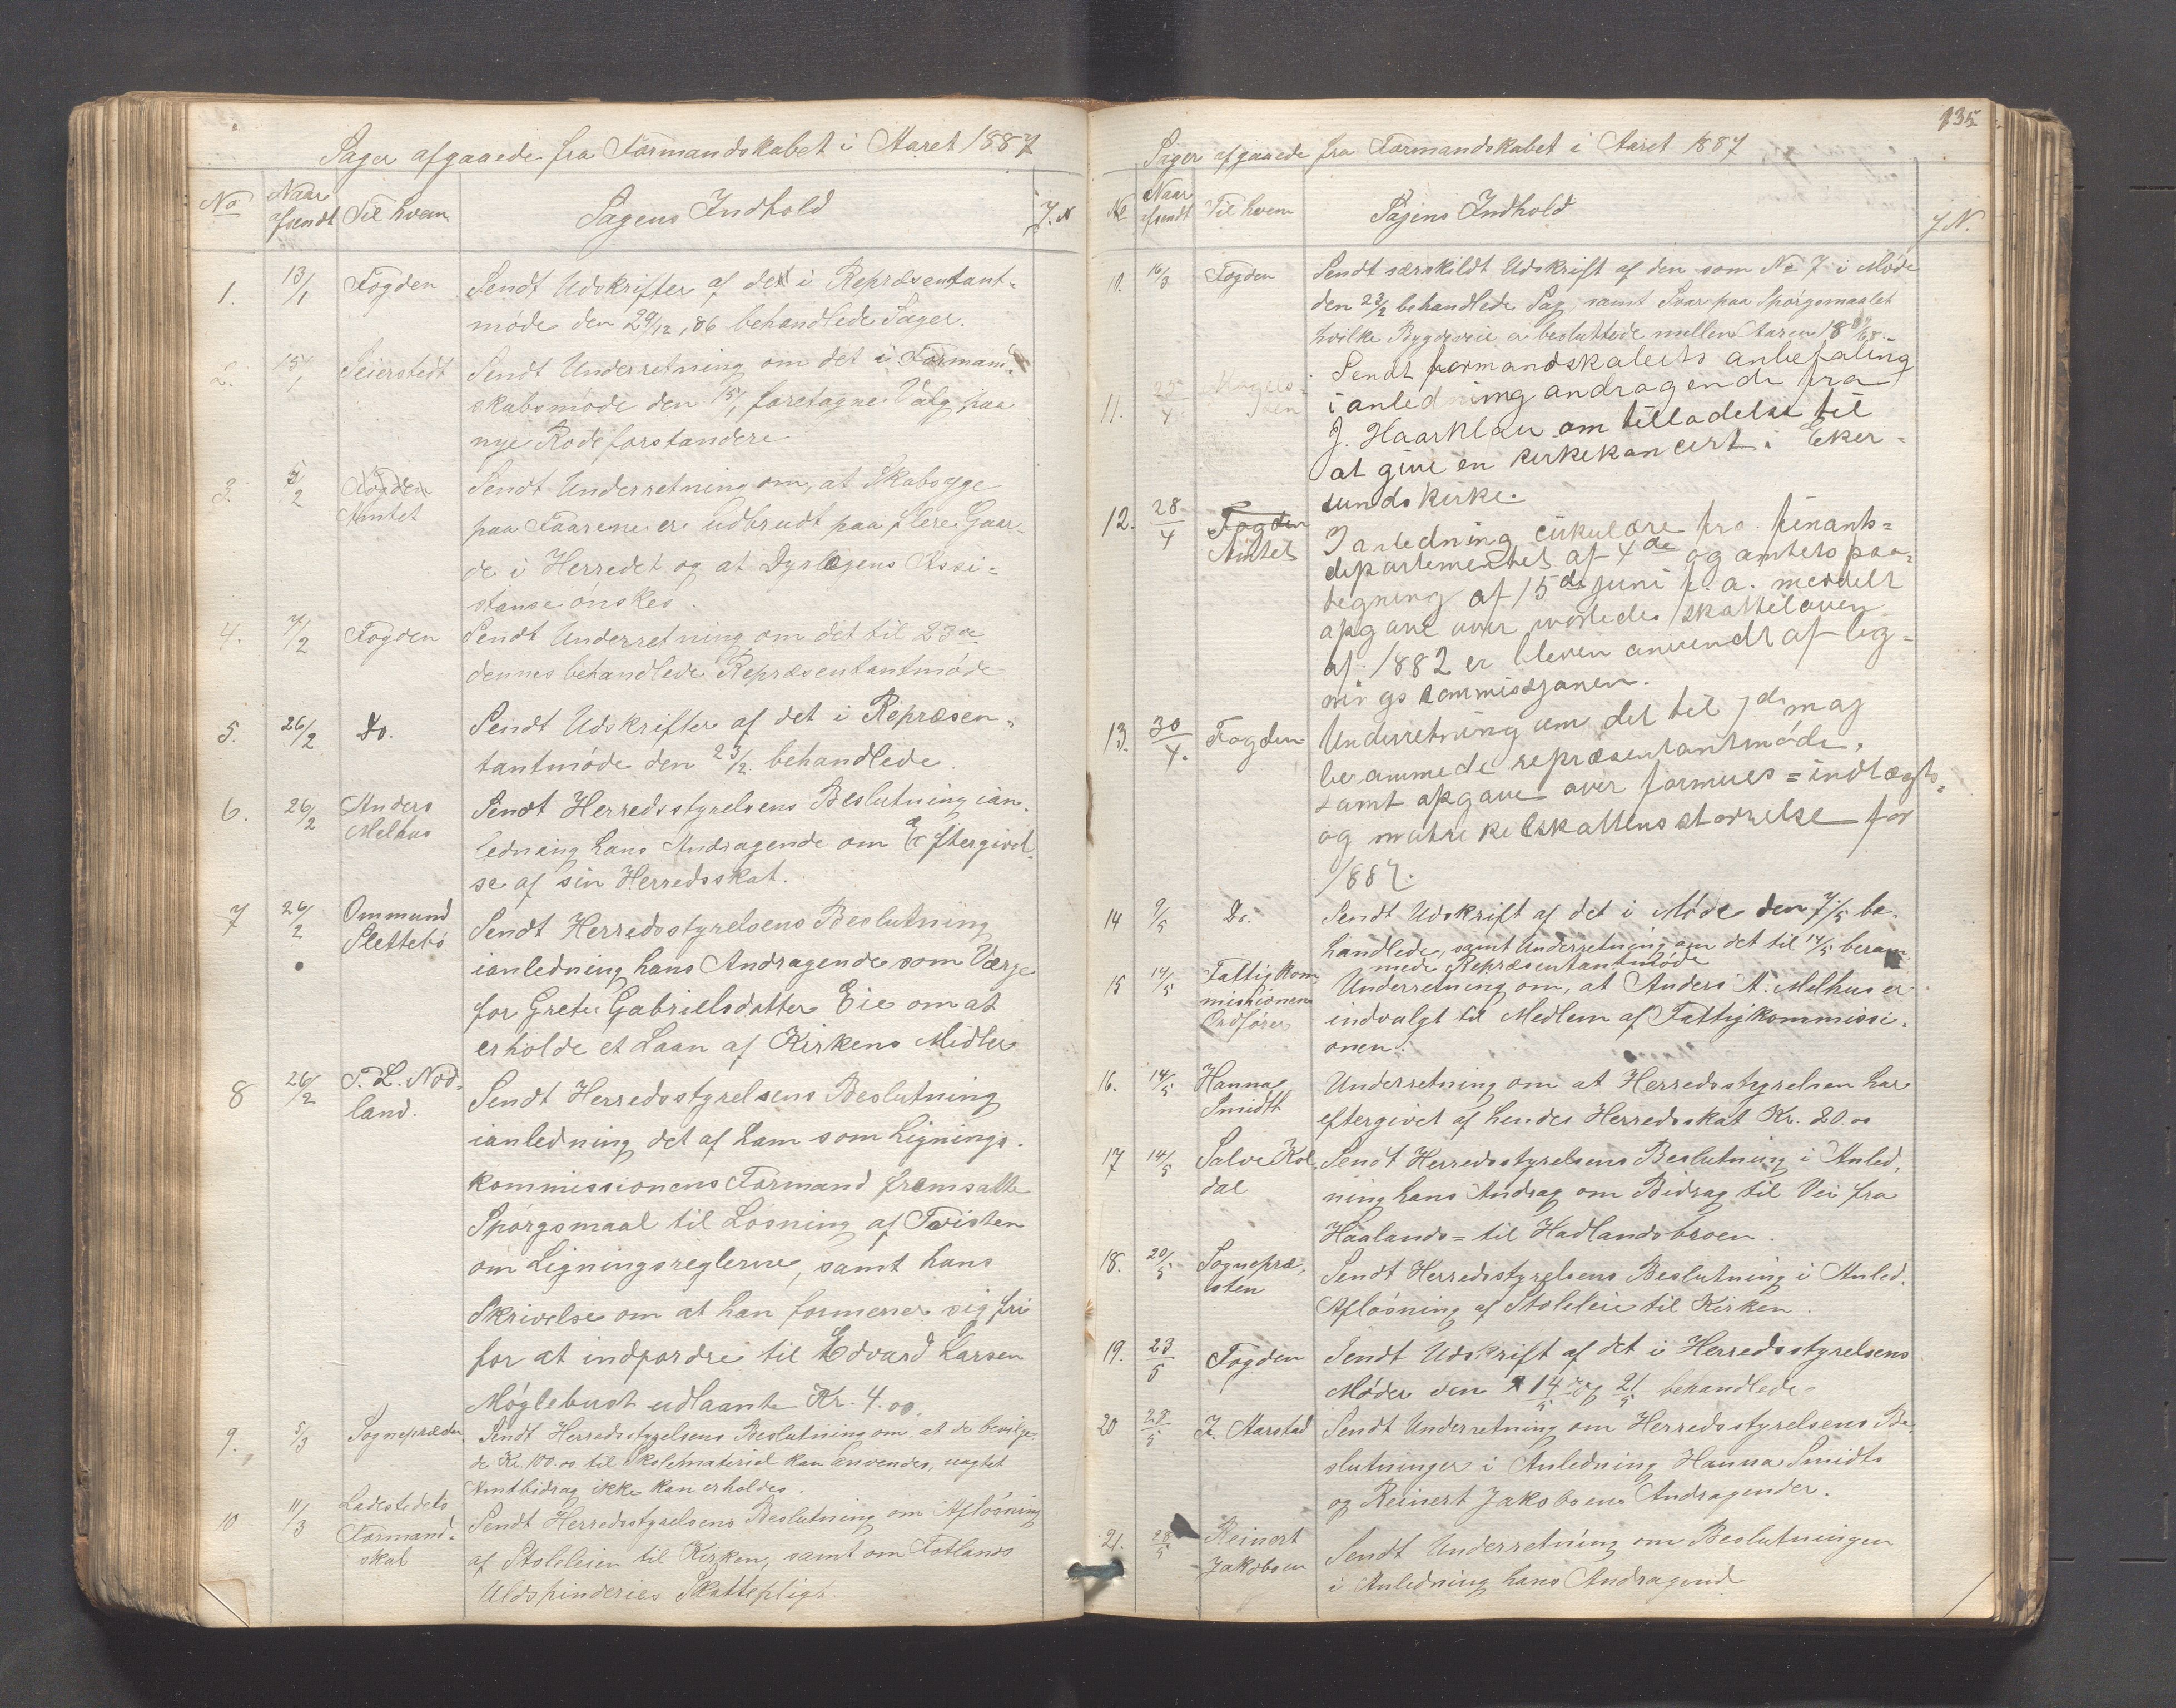 Sager afgaaede fra Formandskabet i Aaret 1887
No Naar afsendt Til hvem Sagens Indhold J.N
1. 13/1 Fogden Sendt Udskrifter af det i Repræsentant-
møde den 29/12, 86 behandlede Sager.
2. 15/1 Seierstedt Sendt Underretning om det i Formand-
skabsmøde den 15/1 foretagne Valg paa
nye Rodeforstandere
3. 5/2 Fogden Amtet Sendt Underretning om, at Skabsyge
paa Faarene er Udbrudt paa flere Gaar-
de i Herredet og at Dyrlægens Assi-
stanse ønskes.
4. 7/2 Fogden Sendt Underretning om det til 23de
dennes behandlede Repræsentantmøde
5. 26/2 Do. Sendt Udskrifter af det i Repræsen-
tantmøde den 23/2 behandlede.
6. 26/2 Anders Melhus Sendt Herredsstyrelsens Beslutning ian-
ledning hans Andragende om Eftergivel-
se af sin Herredsskat.
7 26/2 Ommund Slettebø Sendt Herredsstyrelsens Beslutning
ianledning hans Andragende som Værge
for Grete Gabrielsdatter Eie om at
erholde et Laan af Kirkens Midler
8 26/2 T. L. Nod-
land. Sendt Herredsstyrelsens Beslutning
ianledning det af ham som Lignings-
kommissionens Formand fremsatte
Spørgsmaal til Løsning af Tvisten
om Ligningsreglerne, samt hans
Skrivelse om at han formener sig fri
for at indfordre til Edvard Larsen
Møglebust udlaante Kr. 4.00.
9. 5/3 Sognepræsten Sendt Herredsstyrelsens Beslutning om, at de bevilge-
de Kr. 100.00 til Skolemateriel kan anvendes, uagtet
Amtbidrag ikke kan erholdes.
10 11/3 Ladestedets Formand-
skab Sendt Herredsstyrelsens Beslutning om Afløsning
af Stoleleien til Kirken, samt om Fotlands
Uldspinderies Skattepligt.
135
Sager afgaaede fra Formandskabet i Aaret 1887
No Naar afsendt Til hvem Sagens Indhold J.N.
10. 16/3 Fogden Sendt særskildt Udskrift af den som No 7 i Møde
den 23/2 behandlede Sag, samt Svar paa Spørgsmaalet
hvilke Bygdeveie er besluttede mellem Aaren
11. 25/4 Sendt formandskabets anbefaling
i anledning andragende fra
J. Haarklau om tilladelse til
at give en kirkekoncert i Eker-
sunds kirke.
12. 28/4 Fogden Amtet I anledning cirkulære fra finants=
departementet af 4de og amtets paa-
tegning af 15de juni f.a. meddelt
opgave over vorledes skatteloven
af 1882 er bleven anvendt af lig-
ningskommissjonen.
13. 30/4. Fogden Underretning om det til 7de maj
berammede repræsentantmøde,
samt opgave over formues=indtægts-
og matrikelskattens størrelse for
1887.
14 9/5 Do. Sendt Udskrift af det i Møde den 7/5 be-
handlede, samt Underretning om det til 14/5 beram-
mede Repræsentantmøde
15 14/5 Fattigkom
missionens
Ordfører Underretning om, at Anders A. Melhus er
indvalgt til Medlem af Fattigkommissi-
onen.
16. 14/5 Hanna Smidth Underretning om at Herredsstyrelsen har
eftergivet af hendes Herredsskat Kr. 20.00
17 14/5 Salve Kol-
dal Sendt Herredsstyrelsens Beslutning i Anled-
ning hans Andrag om Bidrag til Vei fra
Haalands= til Hadlandsbroen.
18. 20/5 Sognepræ-
sten Sendt Herredsstyrelsens Beslutning i Anled.
Afløsning af Stoleleie til Kirken.
19. 23/5 Fogden Sendt Udskrift af det i Herredsstyrelsens
Møder den 14/5 og 21/5 behandlede-
20 28/5 Aarstad Sendt Underretning om Herredsstyrelsens Be-
slutninger i Anledning Hanna Smidts
og Reinert Jakobsens Andragender.
21. 28/5 Reinert Jakobsen Sendt Underretning om Beslutningen
i Anledning hans Andragende